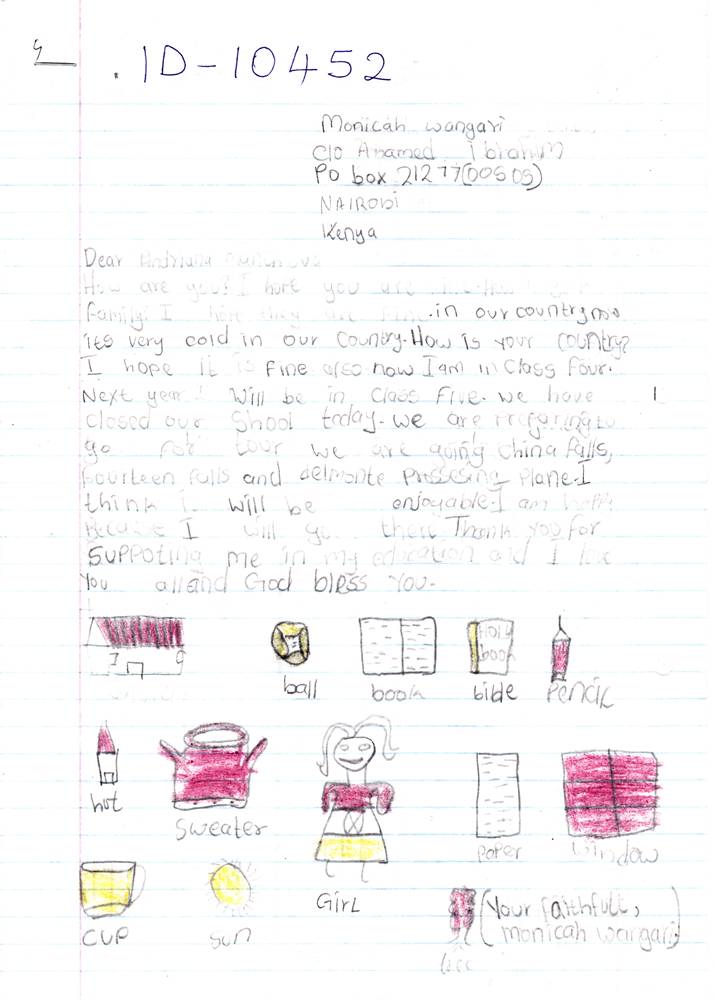 ID-10452
Monicah wangari
C/O Anamed Ibrahim
PO box 21277(00505)
NAIROBI
Kenya
Dear Andriana
How are you? I hope you are
family? I hope they are fine. in our country now
its very cold in our country. How is your country?
I hope it is Fine also now I am in Class Four.
Next year I will be in Class Five. we have
closed our Shool today. we are preparing to
go for tour we are going China falls,
Fourteen Falls and delmonte prossesing plane. I
think i will be enjoyable. I am happy
Because I will go there Thank you for
Suppoting me in my education and I love
You all and God bless You.
ball book bible Pencil
Holy book
hut Sweater paper window
CUP Sun GirL tree
(Your faithfull,
monicah wangari)